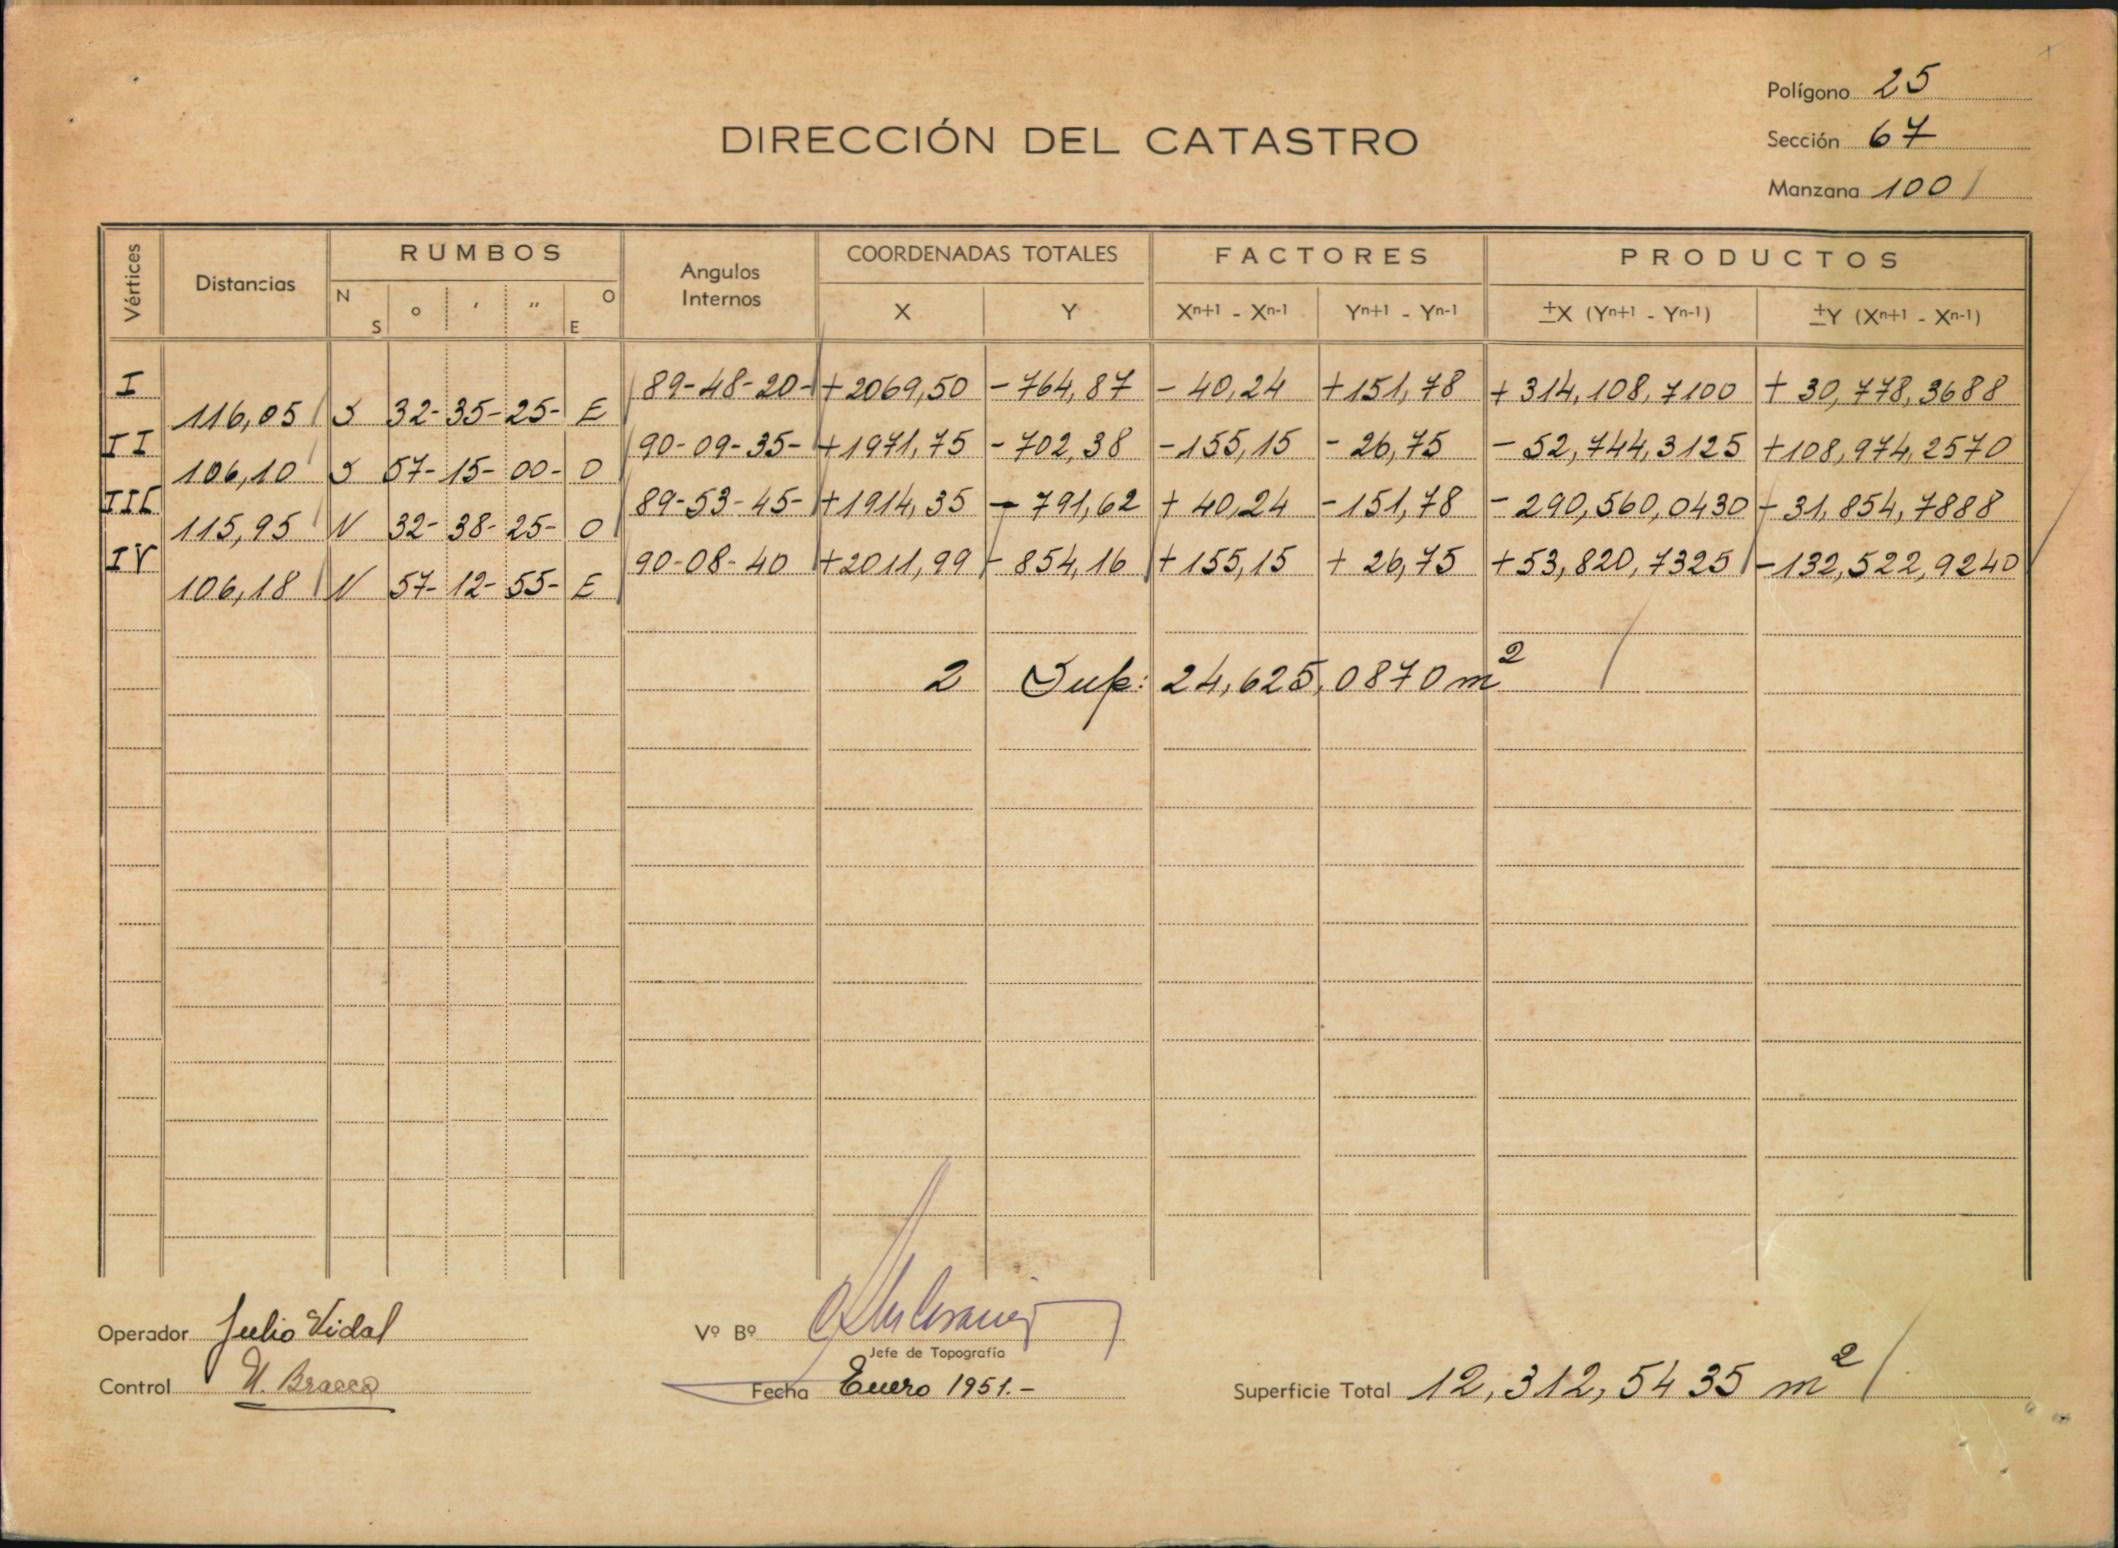 Polígono 25
DIRECCIÓN DEL CATASTRO
Sección 67
Manzana 100
Vértices Distancias RUMBOS Angulos Internos COORDENADAS TOTALES FACTORES PRODUCTOS
N S ° ' " O E X Y Xn+1 - Xn-1 Yn+1 - Yn-1 ±X (Yn+1 - Yn-1) ±Y (Xn+1 - Xn-1)
I 89-48-20- +2069,50 -764,87 -40,24 +151,78 +314,108,7100 +30,778,3688
116,05 S 32-35-25- E
II 90-09-35- +1971,75 -702,38 -155,15 -26,75 -52,744,3125 +108,974,2570
106,10 S 57-15-00- O
III 89-53-45- +1914,35 -791,62 +40,24 -151,78 -290,560,0430 -31,854,7888
115,95 N 32-38-25- O
IV 90-08-40 +2011,99 -854,16 +155,15 +26,75 +53,820,7325 -132,522,9240
106,18 N 57-12-55- E
2 Sup: 24,625,0870 m²
Operador Julio Vidal
Vº Bº
Jefe de Topografía
Control U. Bracco
Fecha Enero 1951.-
Superficie Total 12,312,5435 m²